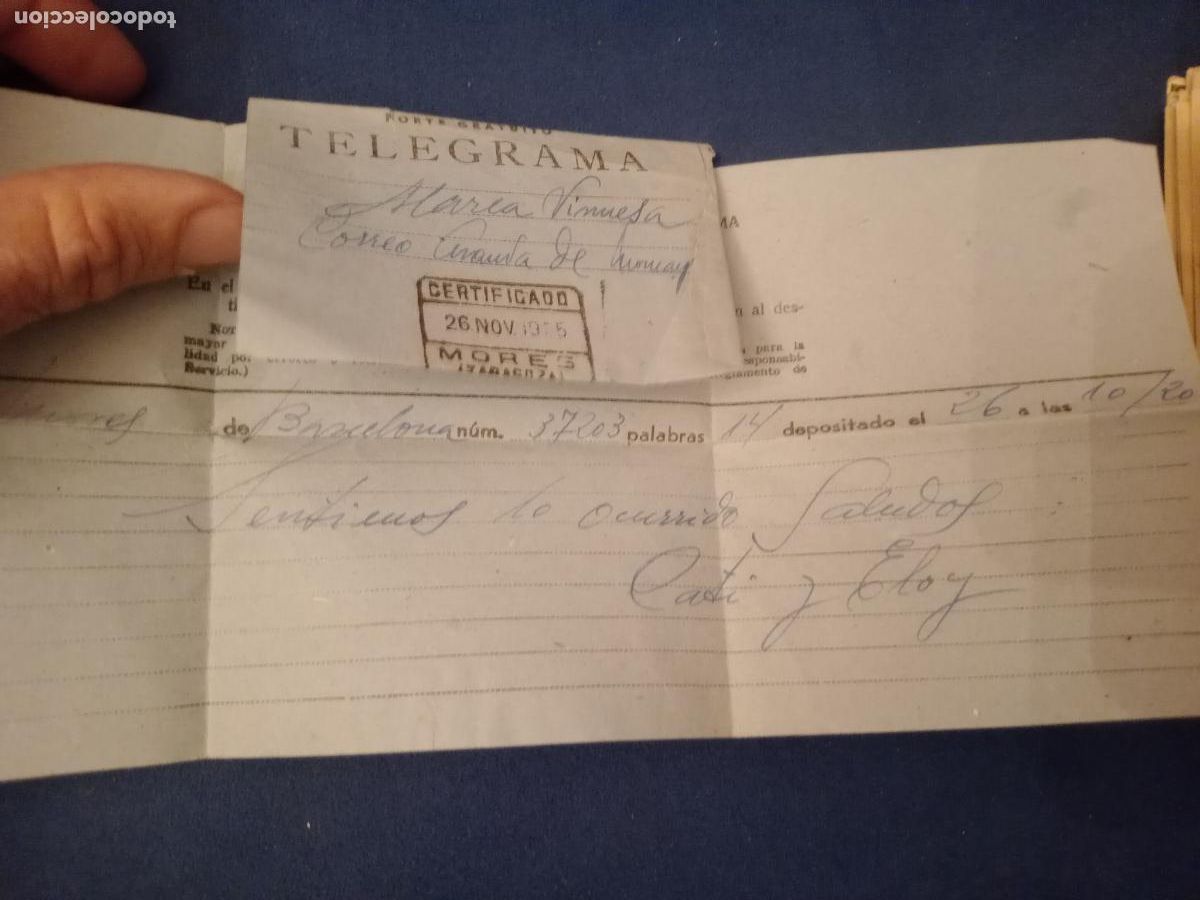 todocoleccion
PORTE GRATUITO
TELEGRAMA
Maria Vinuesa
Correo Aranda de
CERTIFICADO
26 NOV
MORES
(ZARAGOZA)
MA
En el
n al des-
ti
Nor
para la
mayor
esponsabi-
lidad po
glamento de
Servicio.)
Mores de Barcelona núm. 37203 palabras 14 depositado el 26 a las 10/20
Sentimos lo ocurrido Saludos
Cati y Eloy